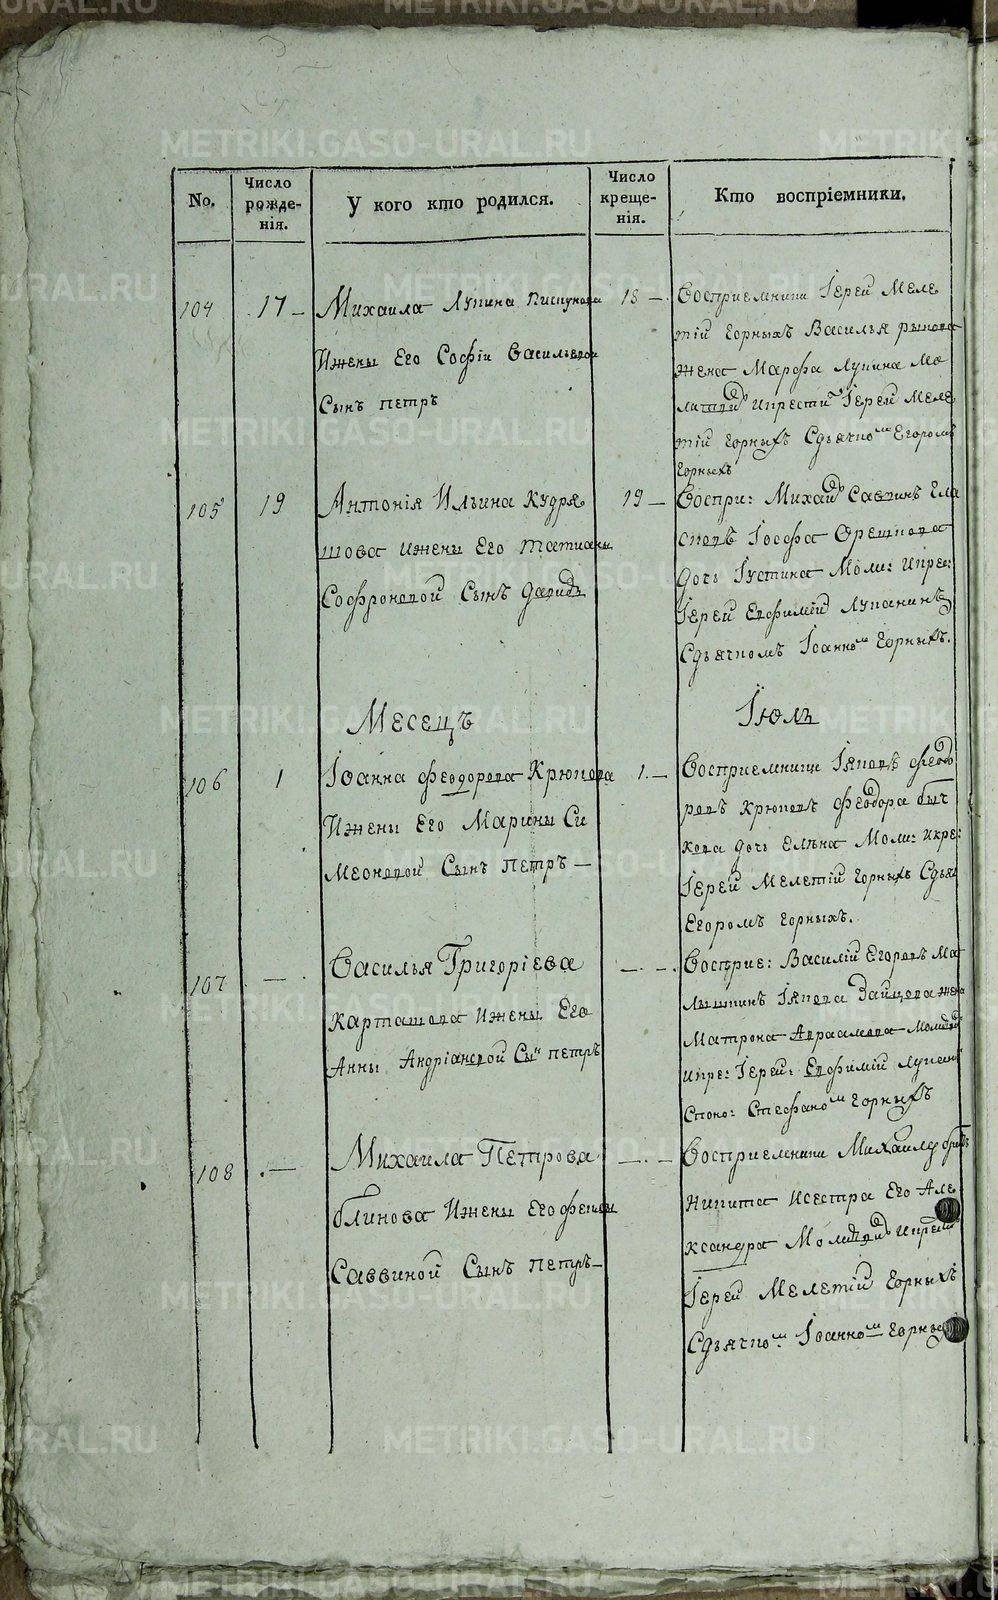 No.
Число рожде-
нія.
У кого кто родился.
Число креще-
нія.
Кто воспріемники.
104
17 –
Михаила Лупина Пискунова
Ижены Его Софіи Васильевой
Сынъ петръ
18 –
Восприемники Іерей Меле
тій Горныхъ Василья рыкова
жена Марфа Лупина Мо
литвой Икрести Іерей Меле
тій Горныхъ Сдьячком Егоромъ
Горныхъ
105
19
Антонія Ильина Кудря
шова Ижены Его Татианы
Софроновой Сынъ Давидъ
19 –
Воспри: Михайл Саввинъ
Іосифа Орешкова
дочь Іустина Моли: Икрес:
Іерей Евфимій Лупанинъ
Сдьячкомъ Іоанном Горныхъ.
Месецъ
Іюль
106
1
Іоанна Феодорова Крюкова
Ижены Его Марины Си
меоновой Сынъ петръ –
1. –
Восприемники Іаковъ Феодо
ровъ Крюковъ Феодора быч
кова дочь Елѣна Моли: Икре:
Іерей Мелетій Горныхъ Сдьяч
Егоромъ Горныхъ.
107
–
Василья Григоріева
Карташова Ижены Его
Анны Андріановой Сын петръ
– . –
Восприе: Василій Егоровъ Ма
лышкинъ Іакова Зайцова жена
Матрона Авраамова Молитвой
Икре: Іерей: Евфимій Лупанин
Споно: Стефаном Горныхъ
108
. –
Михаила Петрова
блинова Ижены Его
Саввиной Сынъ петръ –
– . –
Восприемники Михайло
Никита Исестра Его Але
ксандра Молитвой Икрести
Іерей Мелетій Горныхъ
Сдьячком Іоанном Горных
METRIKI.GASO-URAL.RU